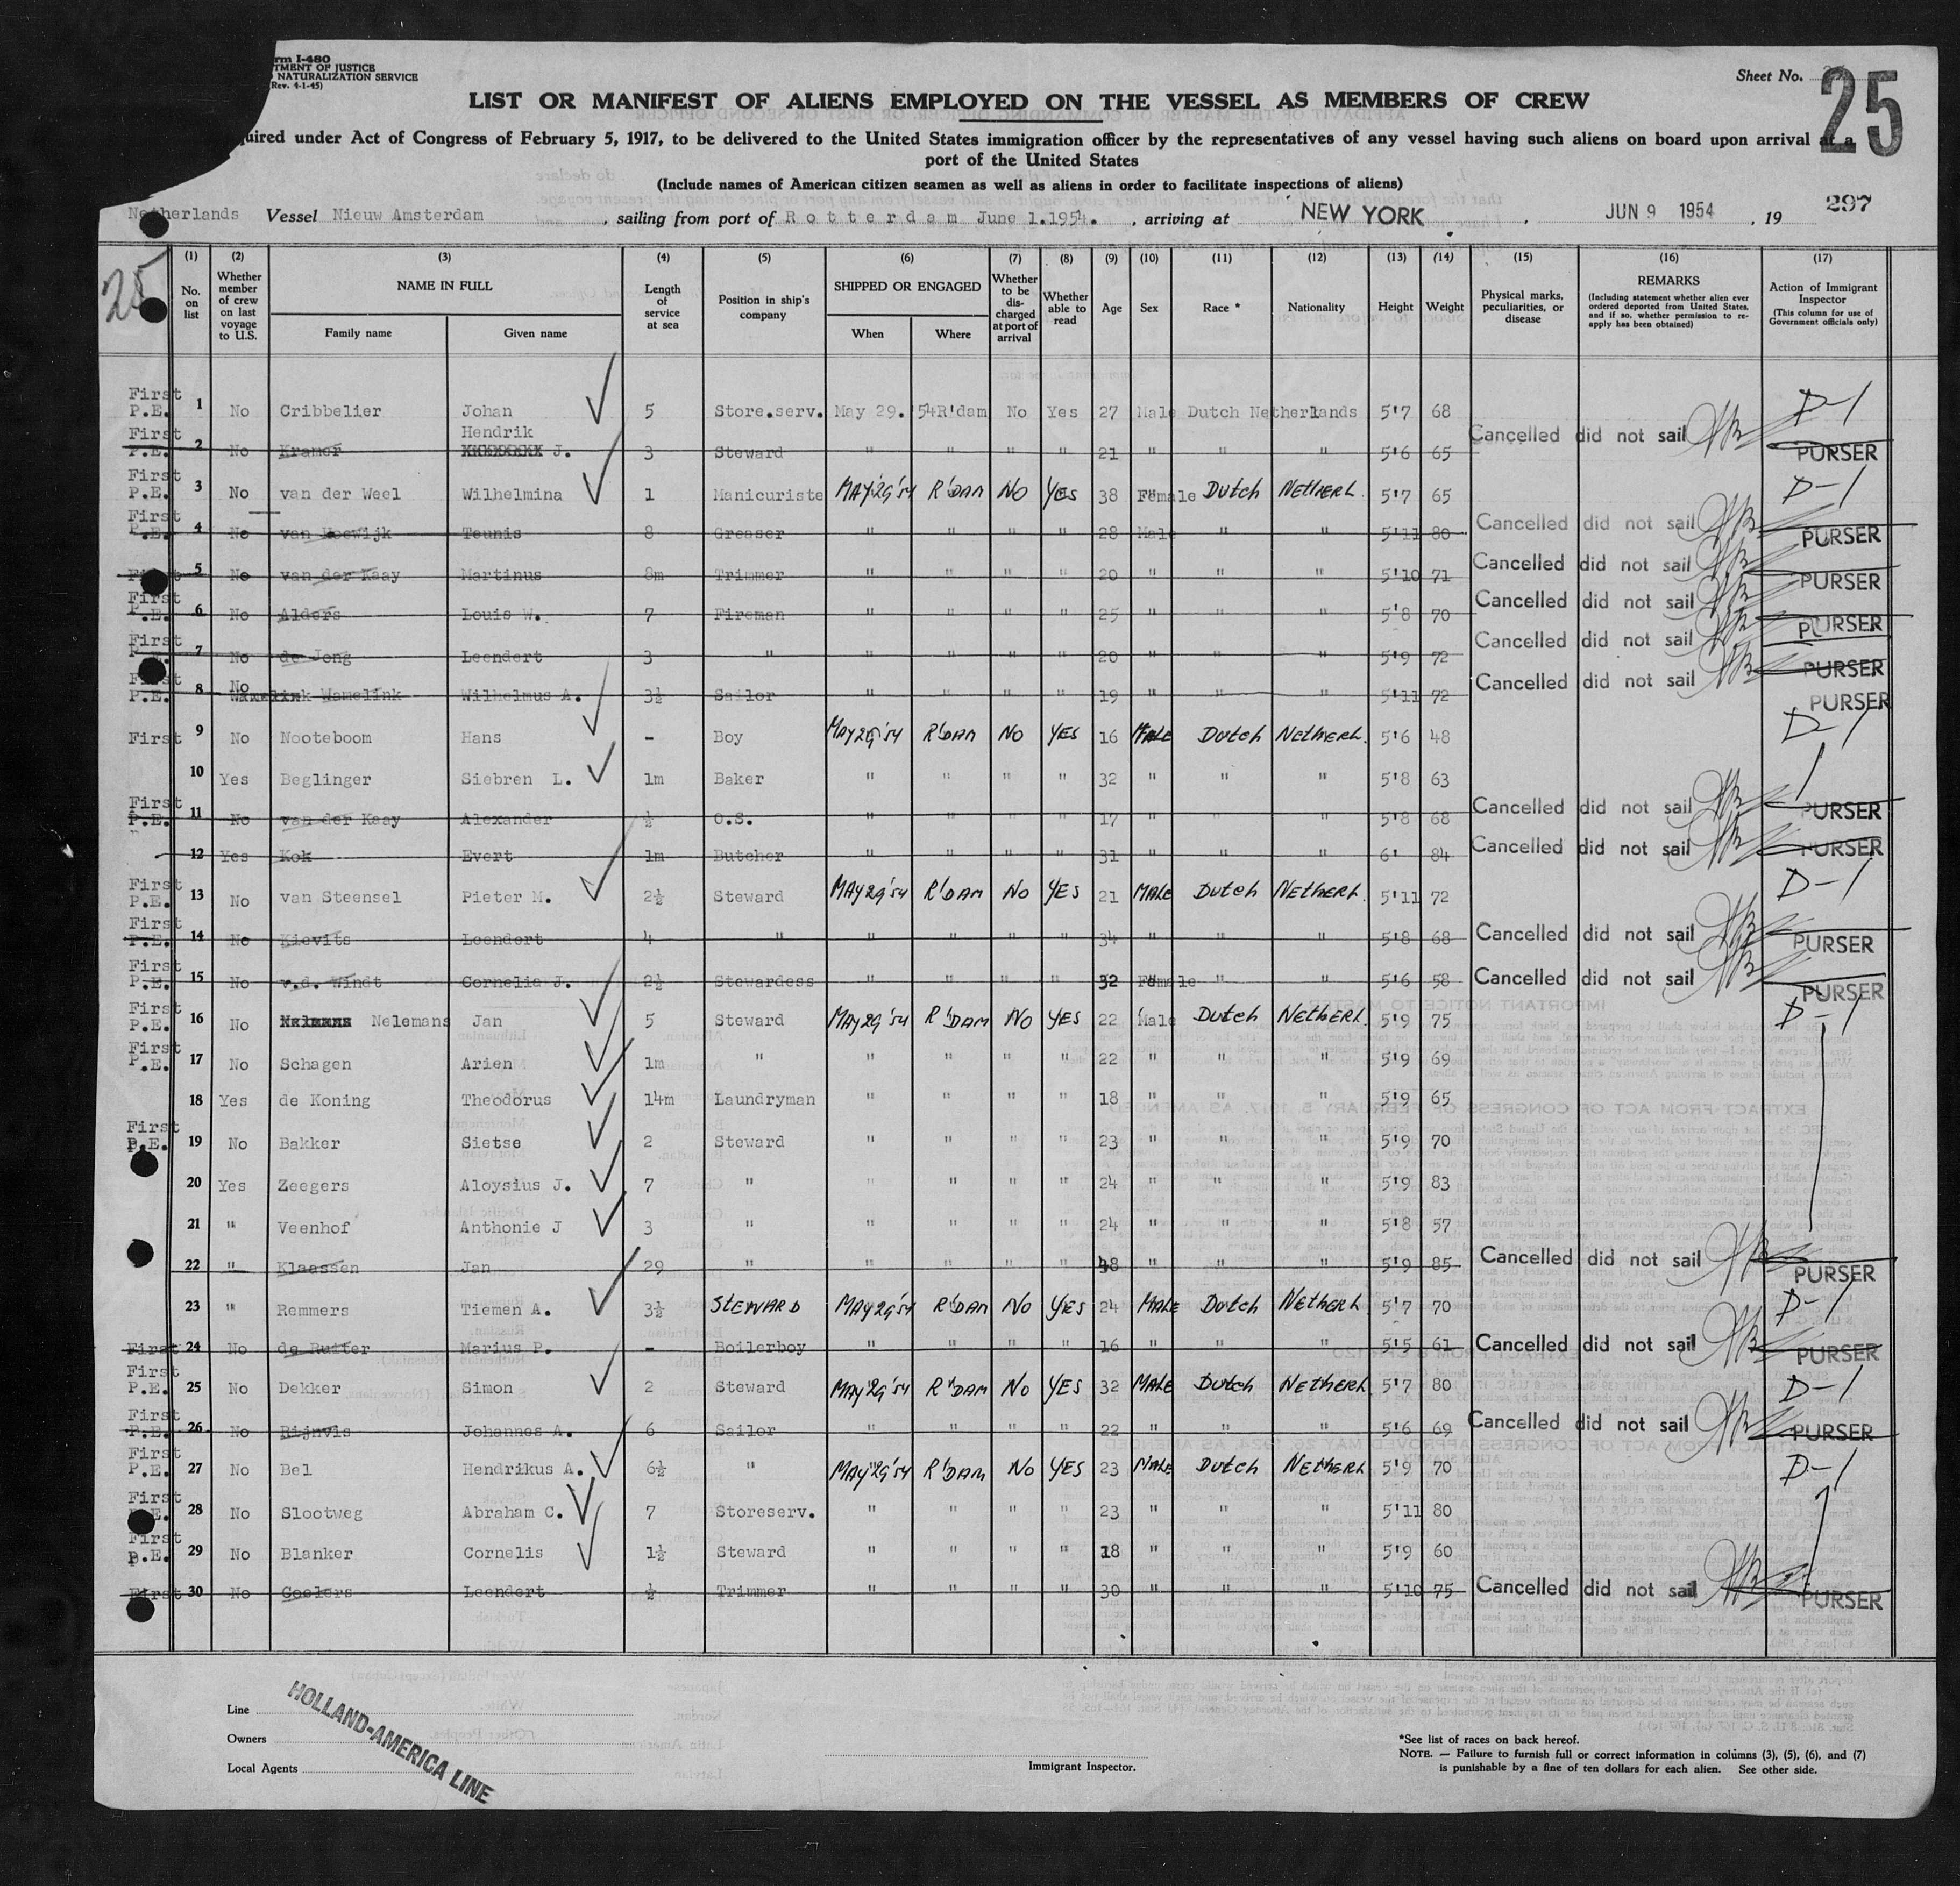 rm I-480
TMENT OF JUSTICE
NATURALIZATION SERVICE
(Rev. 4-1-45)
Sheet No.
25
LIST OR MANIFEST OF ALIENS EMPLOYED ON THE VESSEL AS MEMBERS OF CREW
quired under Act of Congress of February 5, 1917, to be delivered to the United States immigration officer by the representatives of any vessel having such aliens on board upon arrival at a
port of the United States
(Include names of American citizen seamen as well as aliens in order to facilitate inspections of aliens)
Netherlands Vessel Nieuw Amsterdam , sailing from port of Rotterdam June 1.1954. , arriving at NEW YORK , JUN 9 1954 , 19 297
25
(1) (2) (3) (4) (5) (6) (7) (8) (9) (10) (11) (12) (13) (14) (15) (16) (17)
No. on list
Whether member of crew on last voyage to U.S.
NAME IN FULL
Family name
Given name
Length of service at sea
Position in ship's company
SHIPPED OR ENGAGED
When
Where
Whether to be discharged at port of arrival
Whether able to read
Age
Sex
Race *
Nationality
Height
Weight
Physical marks, peculiarities, or disease
REMARKS
(Including statement whether alien ever ordered deported from United States, and if so, whether permission to re-apply has been obtained)
Action of Immigrant Inspector
(This column for use of Government officials only)
First P.E. 1 No Cribbelier Johan 5 Store.serv. May 29.'54 R'dam No Yes 27 Male Dutch Netherlands 5'7 68 D-1
First P.E. 2 No Kramer Hendrik J. 3 Steward " " " " 21 " " " 5'6 65 Cancelled did not sail PURSER
First P.E. 3 No van der Weel Wilhelmina 1 Manicuriste MAY 29'54 R'DAM NO YES 38 Female Dutch Netherl. 5'7 65 D-1
First P.E. 4 No van Teunis 8 Greaser " " " " 28 Male " " 5'11 80 Cancelled did not sail PURSER
First 5 No van der Kaay Martinus 8m Trimmer " " " " 20 " " " 5'10 71 Cancelled did not sail PURSER
First P.E. 6 No Alders Louis W. 7 Fireman " " " " 25 " " " 5'8 70 Cancelled did not sail PURSER
First 7 No de Jong Leendert 3 " " " " " 20 " " " 5'9 72 Cancelled did not sail PURSER
First P.E. 8 No Wamelink Wilhelmus A. 3½ Sailor " " " " 19 " " " 5'11 72 Cancelled did not sail PURSER
First 9 No Nooteboom Hans - Boy MAY 29'54 R'DAM NO YES 16 MALE Dutch Netherl. 5'6 48 D-1
10 Yes Beglinger Siebren L. 1m Baker " " " " 32 " " " 5'8 63
First P.E. 11 No van der Kaay Alexander ½ O.S. " " " " 17 " " " 5'8 68 Cancelled did not sail PURSER
12 Yes Kok Evert 1m Butcher " " " " 31 " " " 6' 84 Cancelled did not sail PURSER
First P.E. 13 No van Steensel Pieter M. 2½ Steward MAY 29'54 R'DAM NO YES 21 MALE Dutch Netherl. 5'11 72 D-1
First P.E. 14 No Kievits Leendert 4 " " " " " 34 " " " 5'8 68 Cancelled did not sail PURSER
First P.E. 15 No v.d. Windt Cornelia J. 2½ Stewardess " " " " 32 Female " " 5'6 58 Cancelled did not sail PURSER
First P.E. 16 No Nelemans Jan 5 Steward MAY 29'54 R'DAM NO YES 22 Male Dutch Netherl. 5'9 75 D-1
First P.E. 17 No Schagen Arien 1m " " " " " 22 " " " 5'9 69
18 Yes de Koning Theodorus 14m Laundryman " " " " 18 " " " 5'9 65
First P.E. 19 No Bakker Sietse 2 Steward " " " " 23 " " " 5'9 70
20 Yes Zeegers Aloysius J. 7 " " " " " 24 " " " 5'9 83
21 " Veenhof Anthonie J 3 " " " " " 24 " " " 5'8 57
22 " Klaassen Jan 29 " " " " " 48 " " " 5'9 85 Cancelled did not sail PURSER
23 " Remmers Tiemen A. 3½ STEWARD MAY 29'54 R'DAM NO YES 24 MALE Dutch Netherl. 5'7 70 D-1
First 24 No de Ruiter Marius P. - Boilerboy " " " " 16 " " " 5'5 61 Cancelled did not sail PURSER
First P.E. 25 No Dekker Simon 2 Steward MAY 29'54 R'DAM NO YES 32 MALE Dutch Netherl. 5'7 80 D-1
First P.E. 26 No Rijnvis Johannes A. 6 Sailor " " " " 22 " " " 5'6 69 Cancelled did not sail PURSER
First P.E. 27 No Bel Hendrikus A. 6½ " MAY 29'54 R'DAM NO YES 23 MALE Dutch Netherl 5'9 70 D-1
First P.E. 28 No Slootweg Abraham C. 7 Storeserv. " " " " 23 " " " 5'11 80
First P.E. 29 No Blanker Cornelis 1½ Steward " " " " 18 " " " 5'9 60
First 30 No Leendert ½ Trimmer " " " " 30 " " " 5'10 75 Cancelled did not sail PURSER
Line
Owners
Local Agents
HOLLAND-AMERICA LINE
Immigrant Inspector.
*See list of races on back hereof.
NOTE. — Failure to furnish full or correct information in columns (3), (5), (6), and (7)
is punishable by a fine of ten dollars for each alien. See other side.